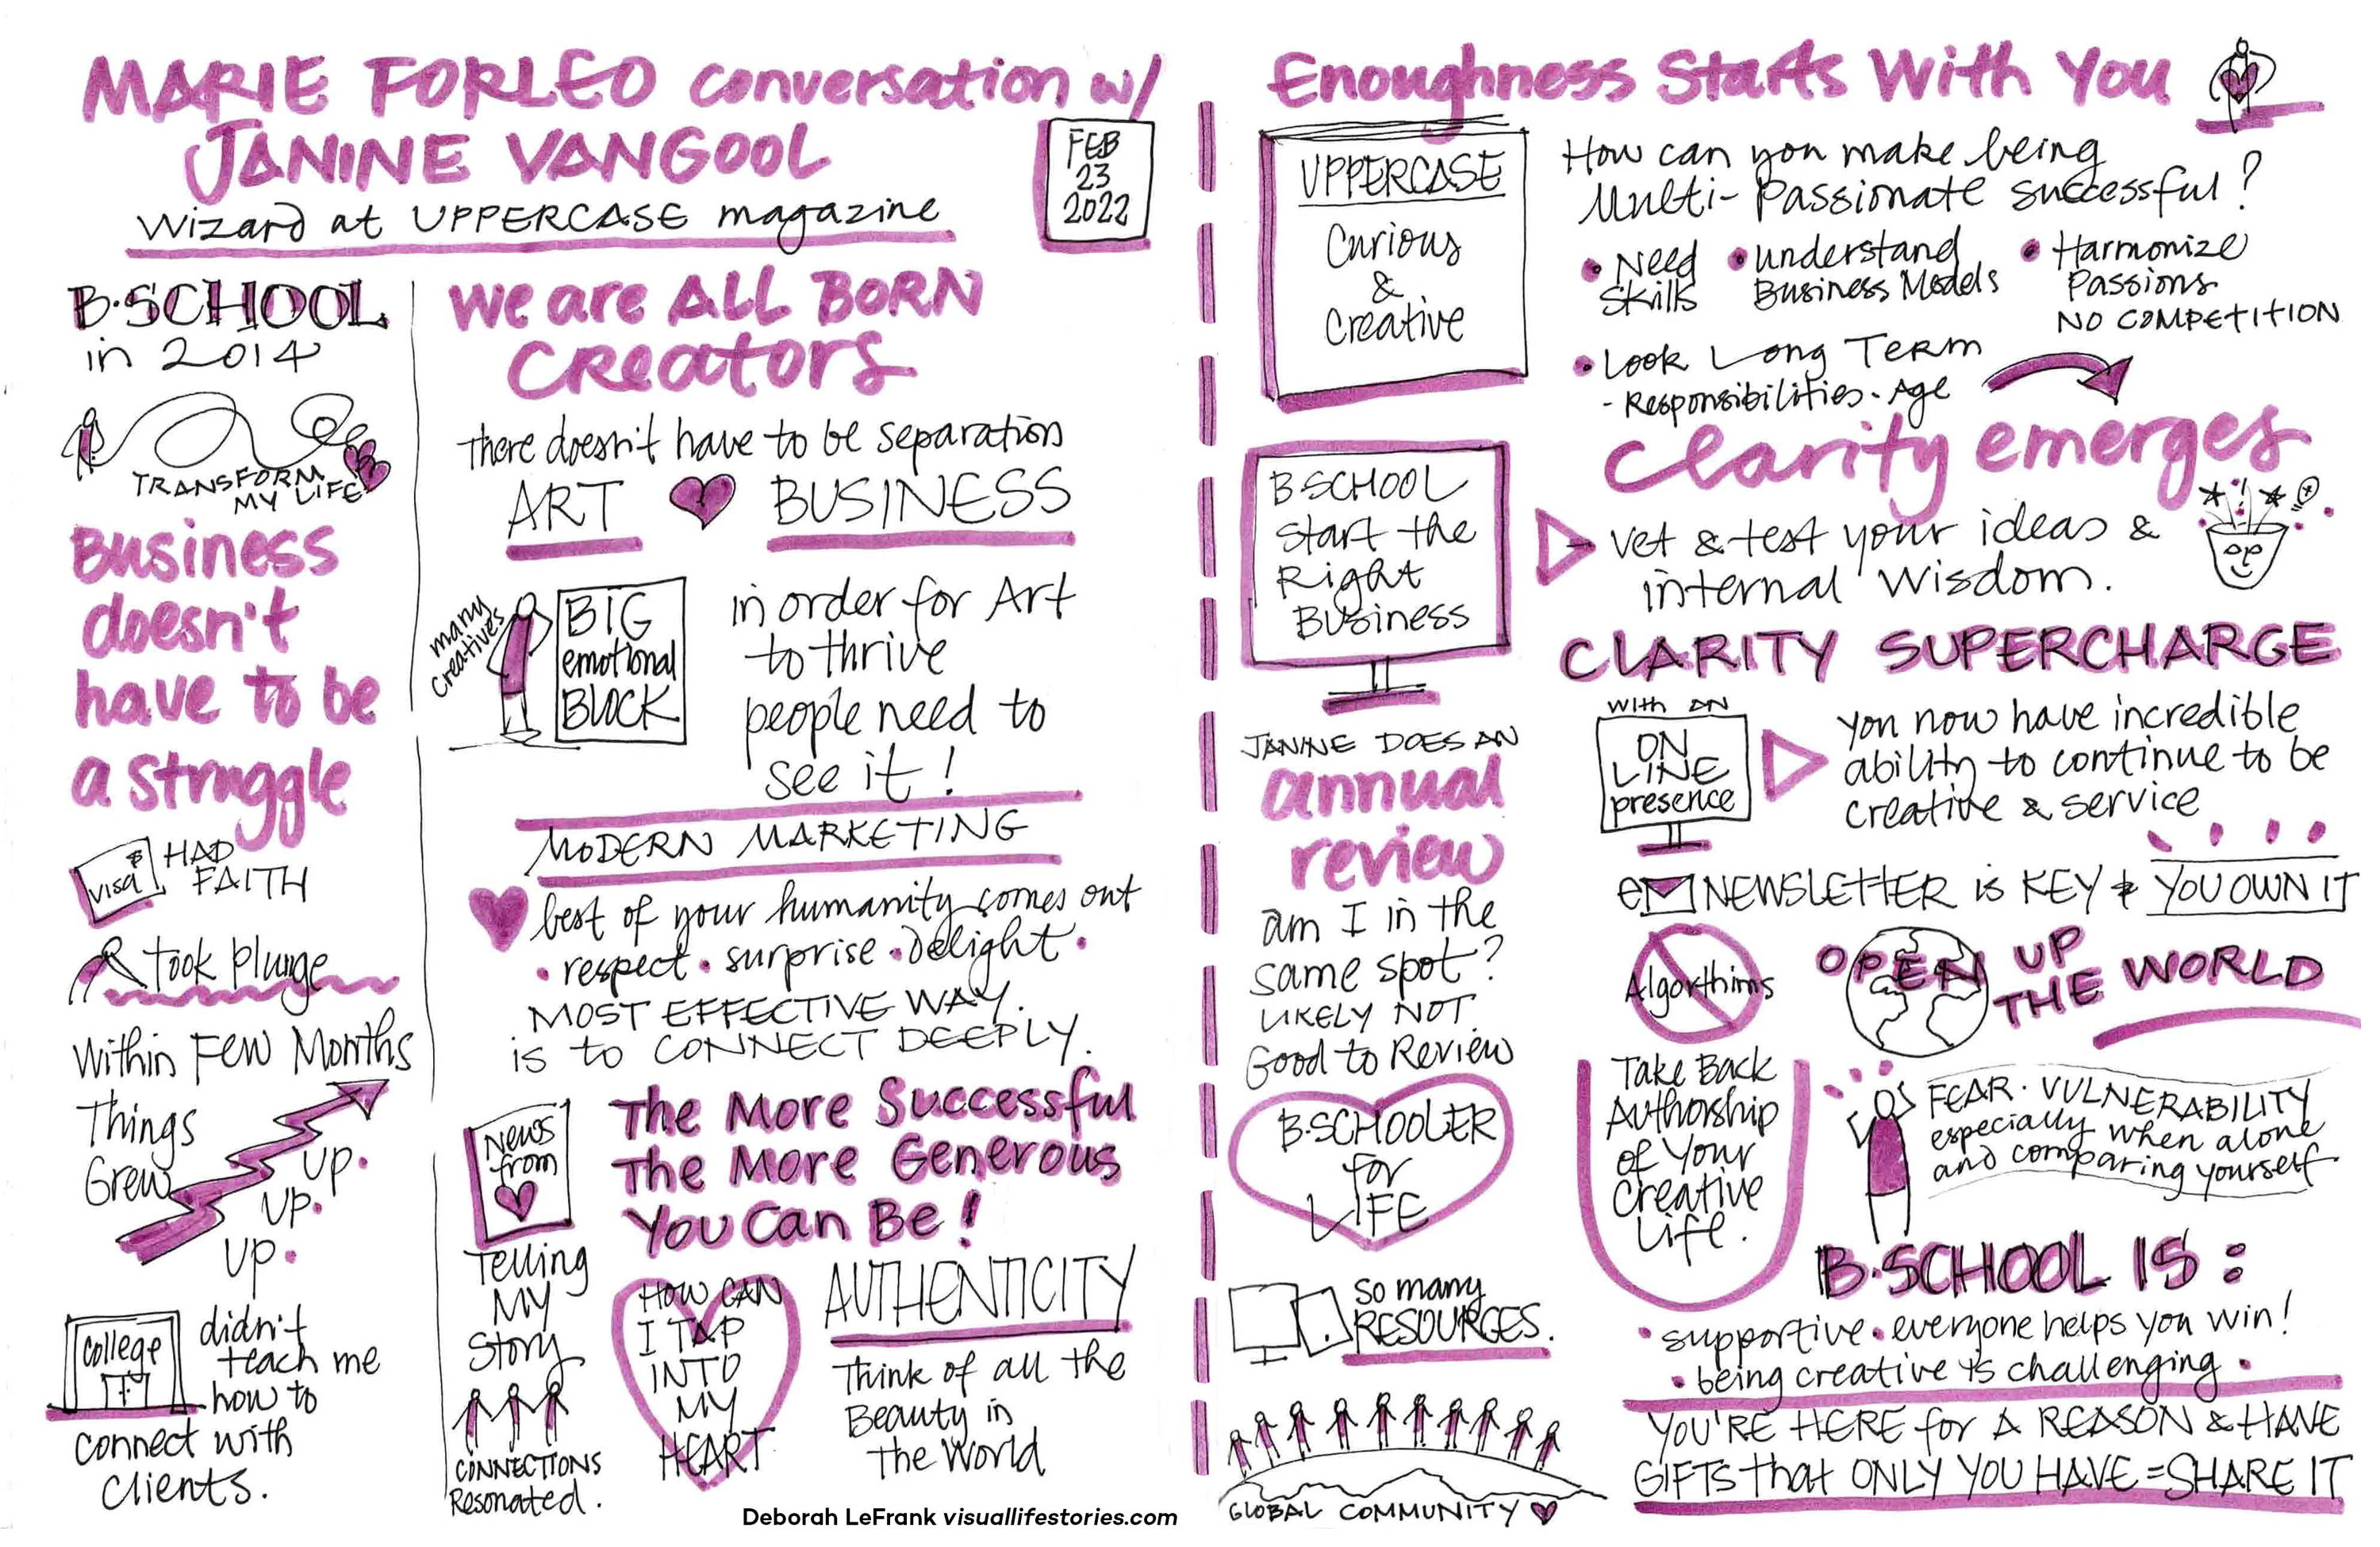 MARIE FORLEO conversation w/
JANINE VANGOOL
Wizard at UPPERCASE magazine
FEB
23
2022
B-SCHOOL
in 2014
TRANSFORM
MY LIFE
Business
doesn't
have to be
a struggle
visa $
HAD
FAITH
took plunge
Within Few Months
Things
Grew
up.
up.
up.
College
didn't
teach me
how to
connect with
clients.
We are ALL BORN
CREATORS
there doesn't have to be separation
ART BUSINESS
many
creatives
BIG
emotional
BLOCK
in order for Art
to thrive
people need to
see it!
MODERN MARKETING
best of your humanity comes out
• respect • surprise • delight •
MOST EFFECTIVE WAY.
is to CONNECT DEEPLY.
News
from
The More Successful
The More Generous
You Can Be!
Telling
MY
Story
CONNECTIONS
Resonated.
HOW CAN
I TAP
INTO
MY
HEART
AUTHENTICITY
Think of all the
Beauty in
the World
Deborah LeFrank visuallifestories.com
Enoughness Starts With You
UPPERCASE
Curious
&
Creative
How can you make being
Multi-Passionate successful?
• Need
Skills
• understand
Business Models
• Harmonize
Passions
NO COMPETITION
• Look Long Term
- Responsibilities - Age
clarity emerges
B-SCHOOL
Start the
Right
Business
vet & test your ideas &
internal wisdom.
CLARITY SUPERCHARGE
with AN
ON
LINE
presence
you now have incredible
ability to continue to be
creative & service
JANINE DOES AN
annual
review
am I in the
same spot?
LIKELY NOT
Good to Review
e NEWSLETTER is KEY & YOU OWN IT
Algorthims
OPEN UP
THE WORLD
B-SCHOOLER
for
LIFE
Take Back
Authorship
of Your
Creative
Life.
FEAR • VULNERABILITY
especially when alone
and comparing yourself
so many
RESOURCES.
GLOBAL COMMUNITY
B-SCHOOL IS:
• supportive • everyone helps you win!
• being creative is challenging •
YOU'RE HERE for A REASON & HAVE
GIFTS that ONLY YOU HAVE = SHARE IT